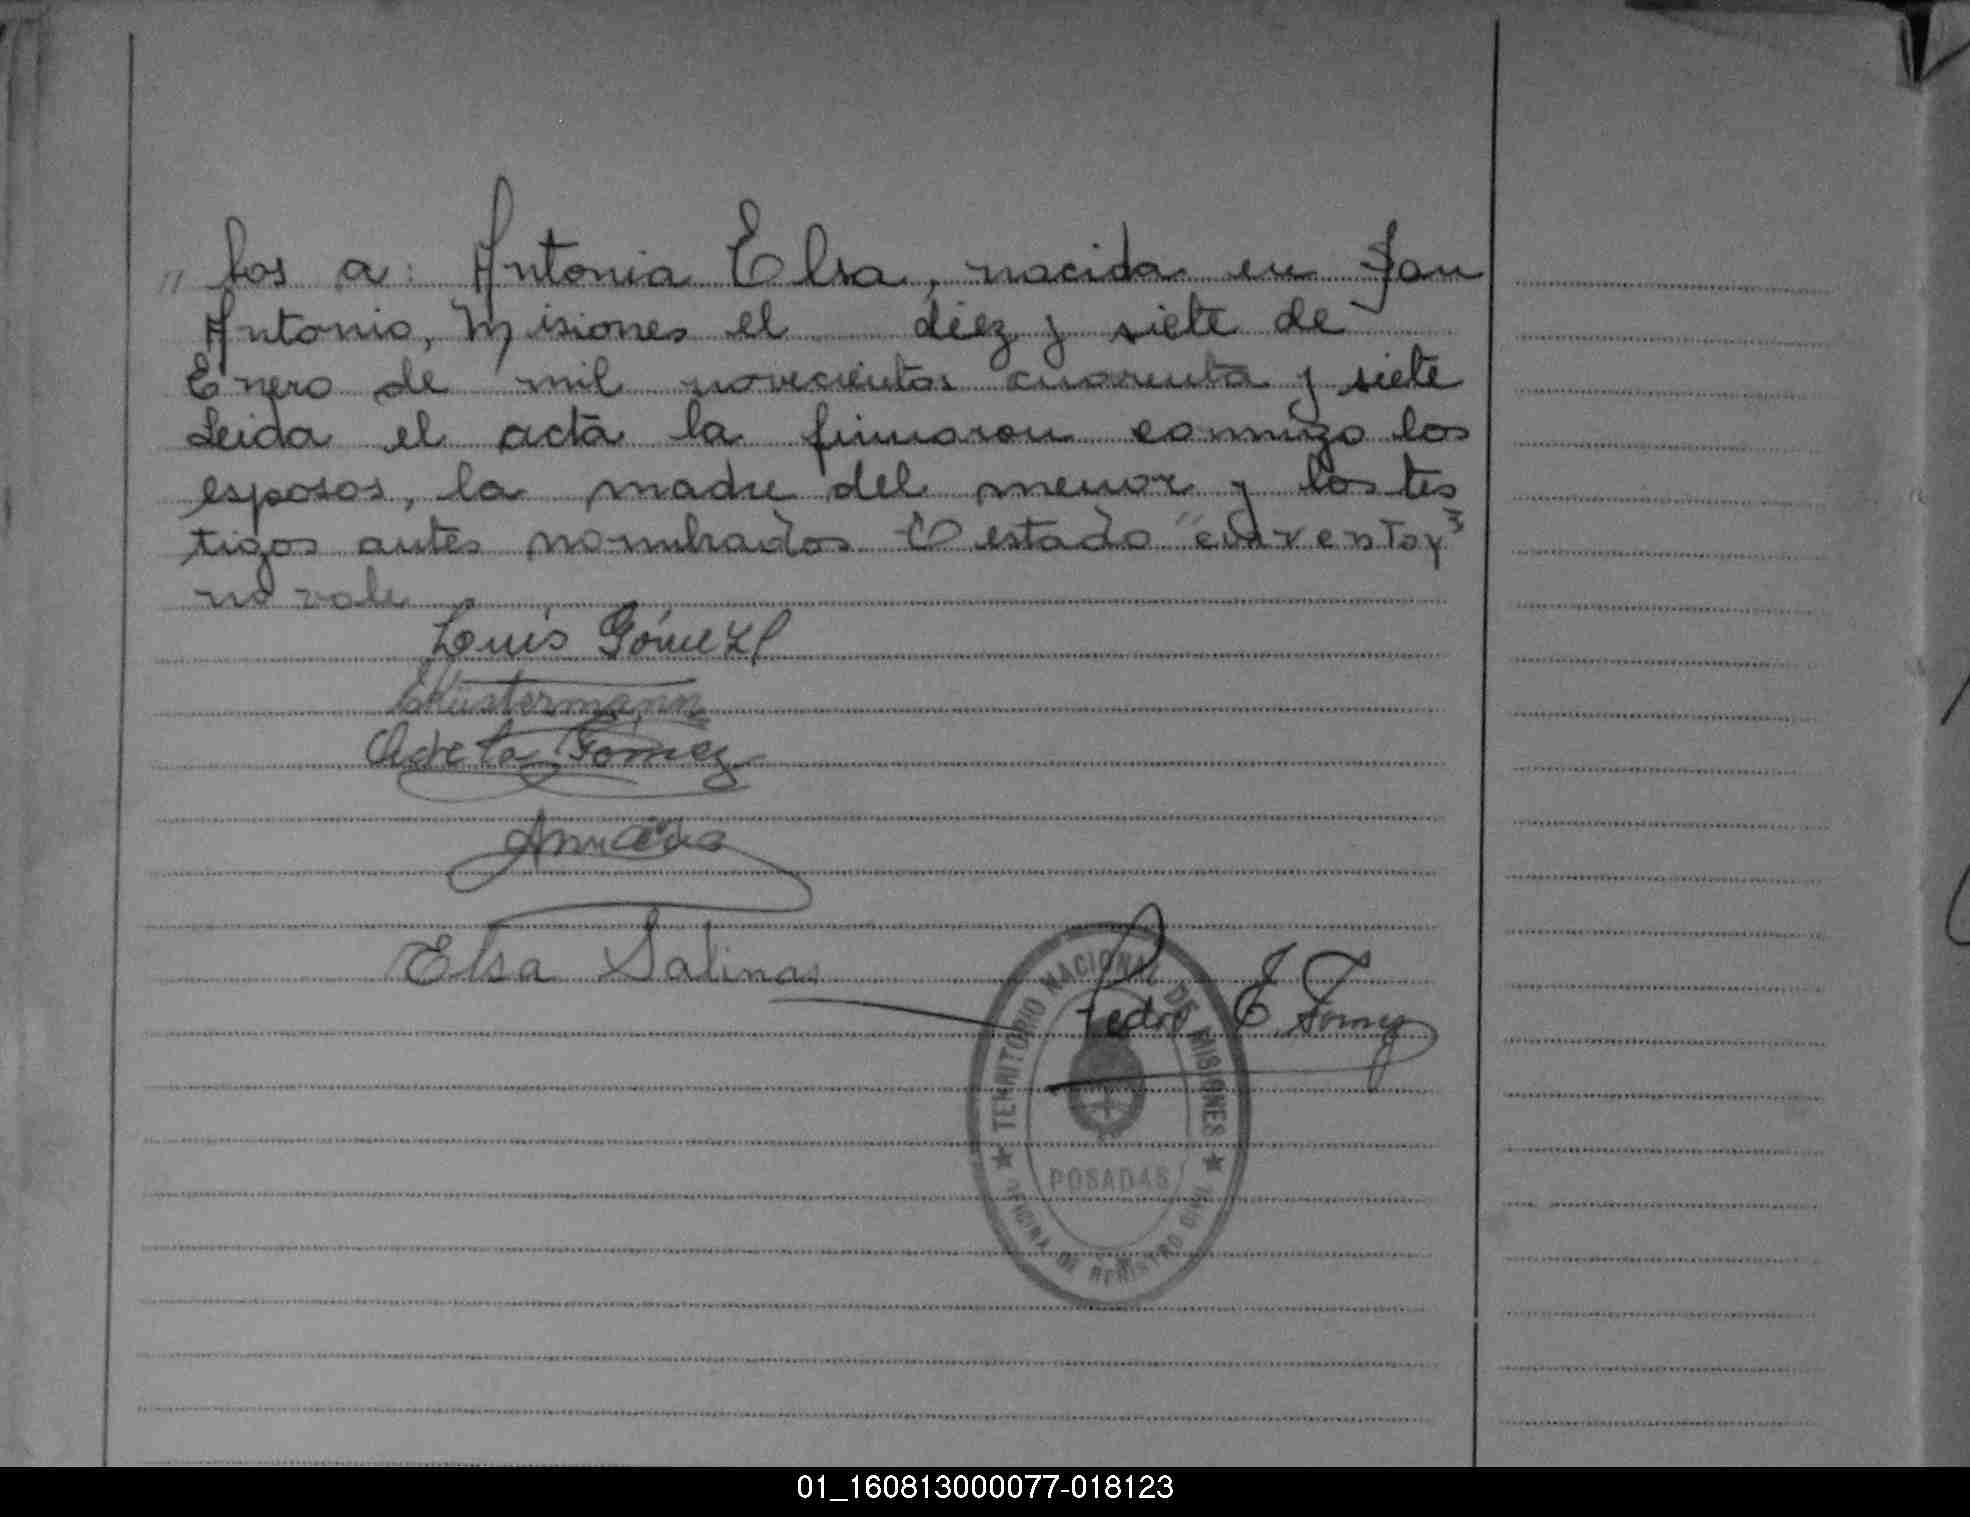 " bos a: Antonia Elsa, nacida en San
Antonio, Misiones el diez y siete de
Enero de mil novecientos cuarenta y siete
Leida el acta la firmaron conmigo los
esposos, la madre del menor y los tes
tigos antes nombrados Testado "cuarenta y"
no vale
Louis Gómez
Küstermann
Adela Gomez
Elsa Salinas
Pedro E. Gomez
TERRITORIO NACIONAL DE MISIONES
POSADAS
OFICINA DE REGISTRO CIVIL
01_160813000077-018123